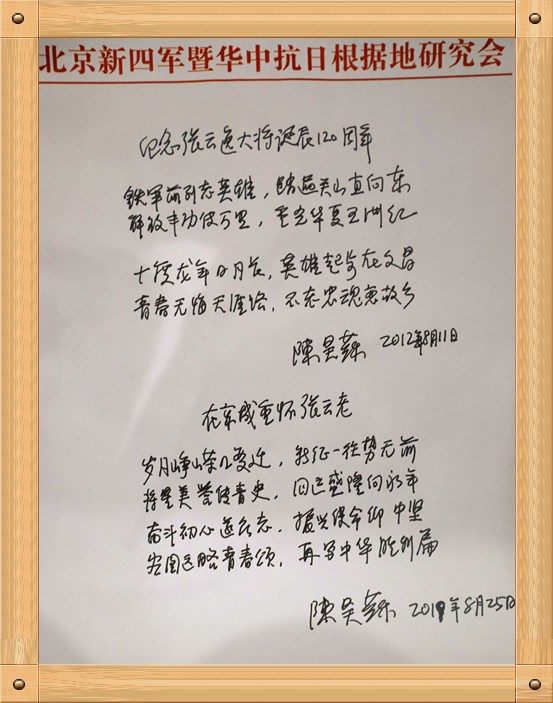 北京新四军暨华中抗日根据地研究会
纪念张云逸大将诞辰120周年
铁军前列志英雄，跨越关山直向东
解放丰功传万里，重光华夏五洲红
十度龙年日月长，英雄起步在文昌
青春无悔天涯路，不忘忠魂惠故乡
陈昊苏 2012年8月11日
在京城重怀张云老
岁月峥嵘几变迁，长征一往势无前
将星美誉传青史，国运盛隆向永年
奋斗初心逐远志，振兴使命仰中坚
宏图大略青春颂，再写中华胜利篇
陈昊苏 2019年8月25日